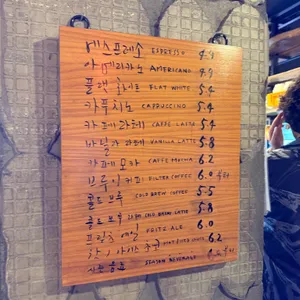 에스프레소 ESPRESSO 4.9
아메리카노 AMERICANO 4.9
플랫 화이트 FLAT WHITE 5.4
카푸치노 CAPPUCCINO 5.4
카페라떼 CAFFE LATTE 5.4
바닐라 라떼 VANILLA LATTE 5.8
카페 모카 CAFFE MOCHA 6.2
브루잉 커피 FILTER COFFEE 6.0
콜드브루 COLD BREW COFFEE 5.5
콜드브루 라떼 COLD BREW LATTE 5.8
6.0
6.2
SEASON BEVERAGE